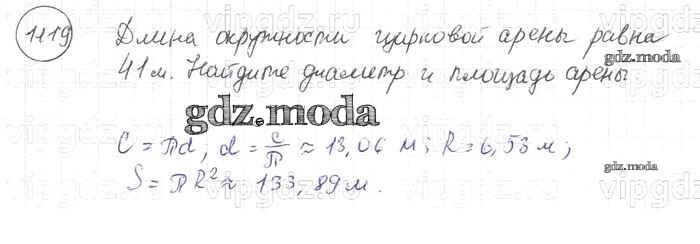 1119 Длина окружности цирковой арены равна
41 м. Найдите диаметр и площадь арены
gdz.moda
C = πd; d = C/π ≈ 13,06 м; R = 6,53 м;
S = πR² ≈ 133,89 м.